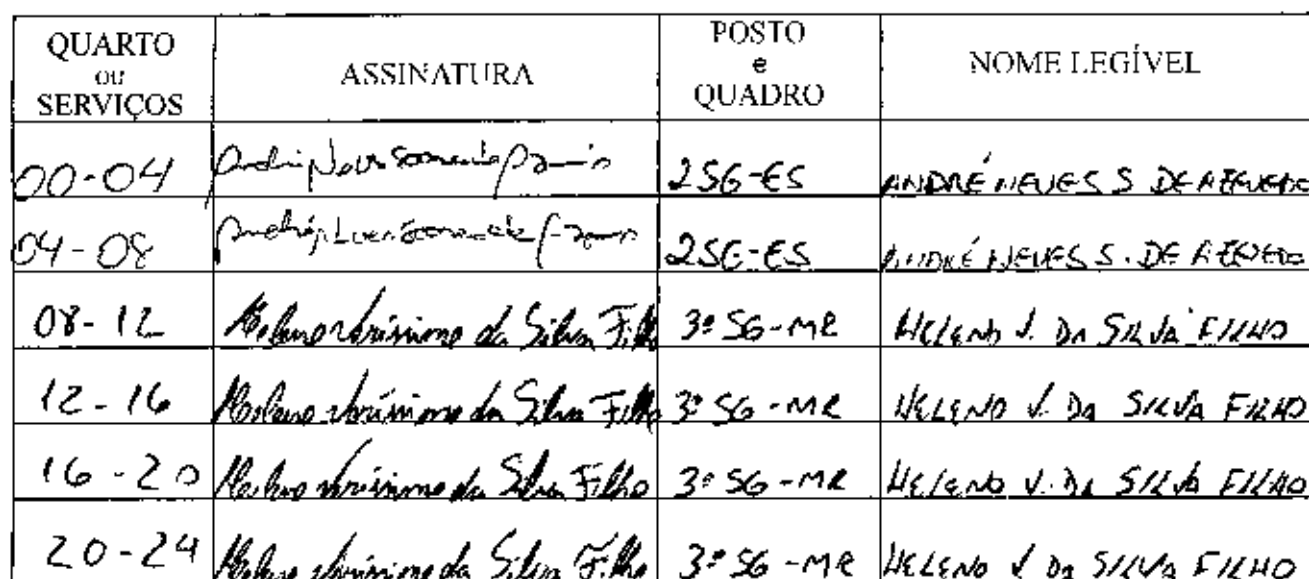 QUARTO ou SERVIÇOS ASSINATURA POSTO e QUADRO NOME LEGÍVEL
00-04 2SG-ES ANDRÉ NEVES S DE AZEVEDO
04-08 2SG-ES ANDRÉ NEVES S. DE AZEVEDO
08-12 Heleno Veríssimo da Silva Filho 3º SG-MR HELENO V. DA SILVA FILHO
12-16 Heleno Veríssimo da Silva Filho 3º SG-MR HELENO V. DA SILVA FILHO
16-20 Heleno Veríssimo da Silva Filho 3º SG-MR HELENO V. DA SILVA FILHO
20-24 Heleno Veríssimo da Silva Filho 3º SG-MR HELENO V DA SILVA FILHO